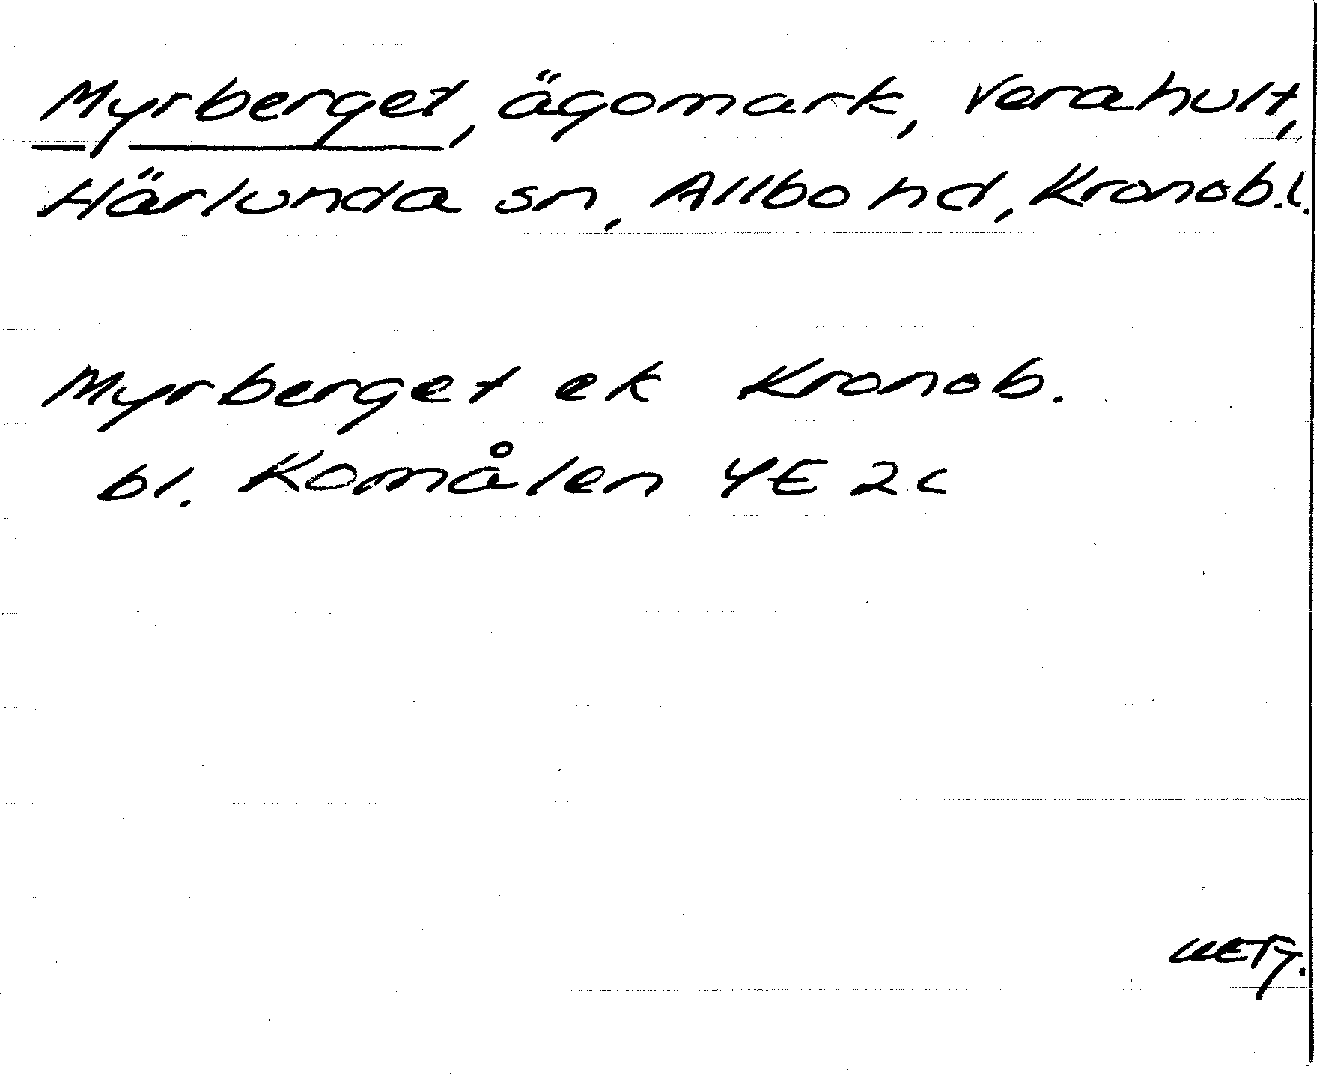 Myrberget, ägomark, Verahult,
Härlunda sn, Allbo hd, Kronob.l.
Myrberget ek Kronob.
bl. Komålen 4E 2c